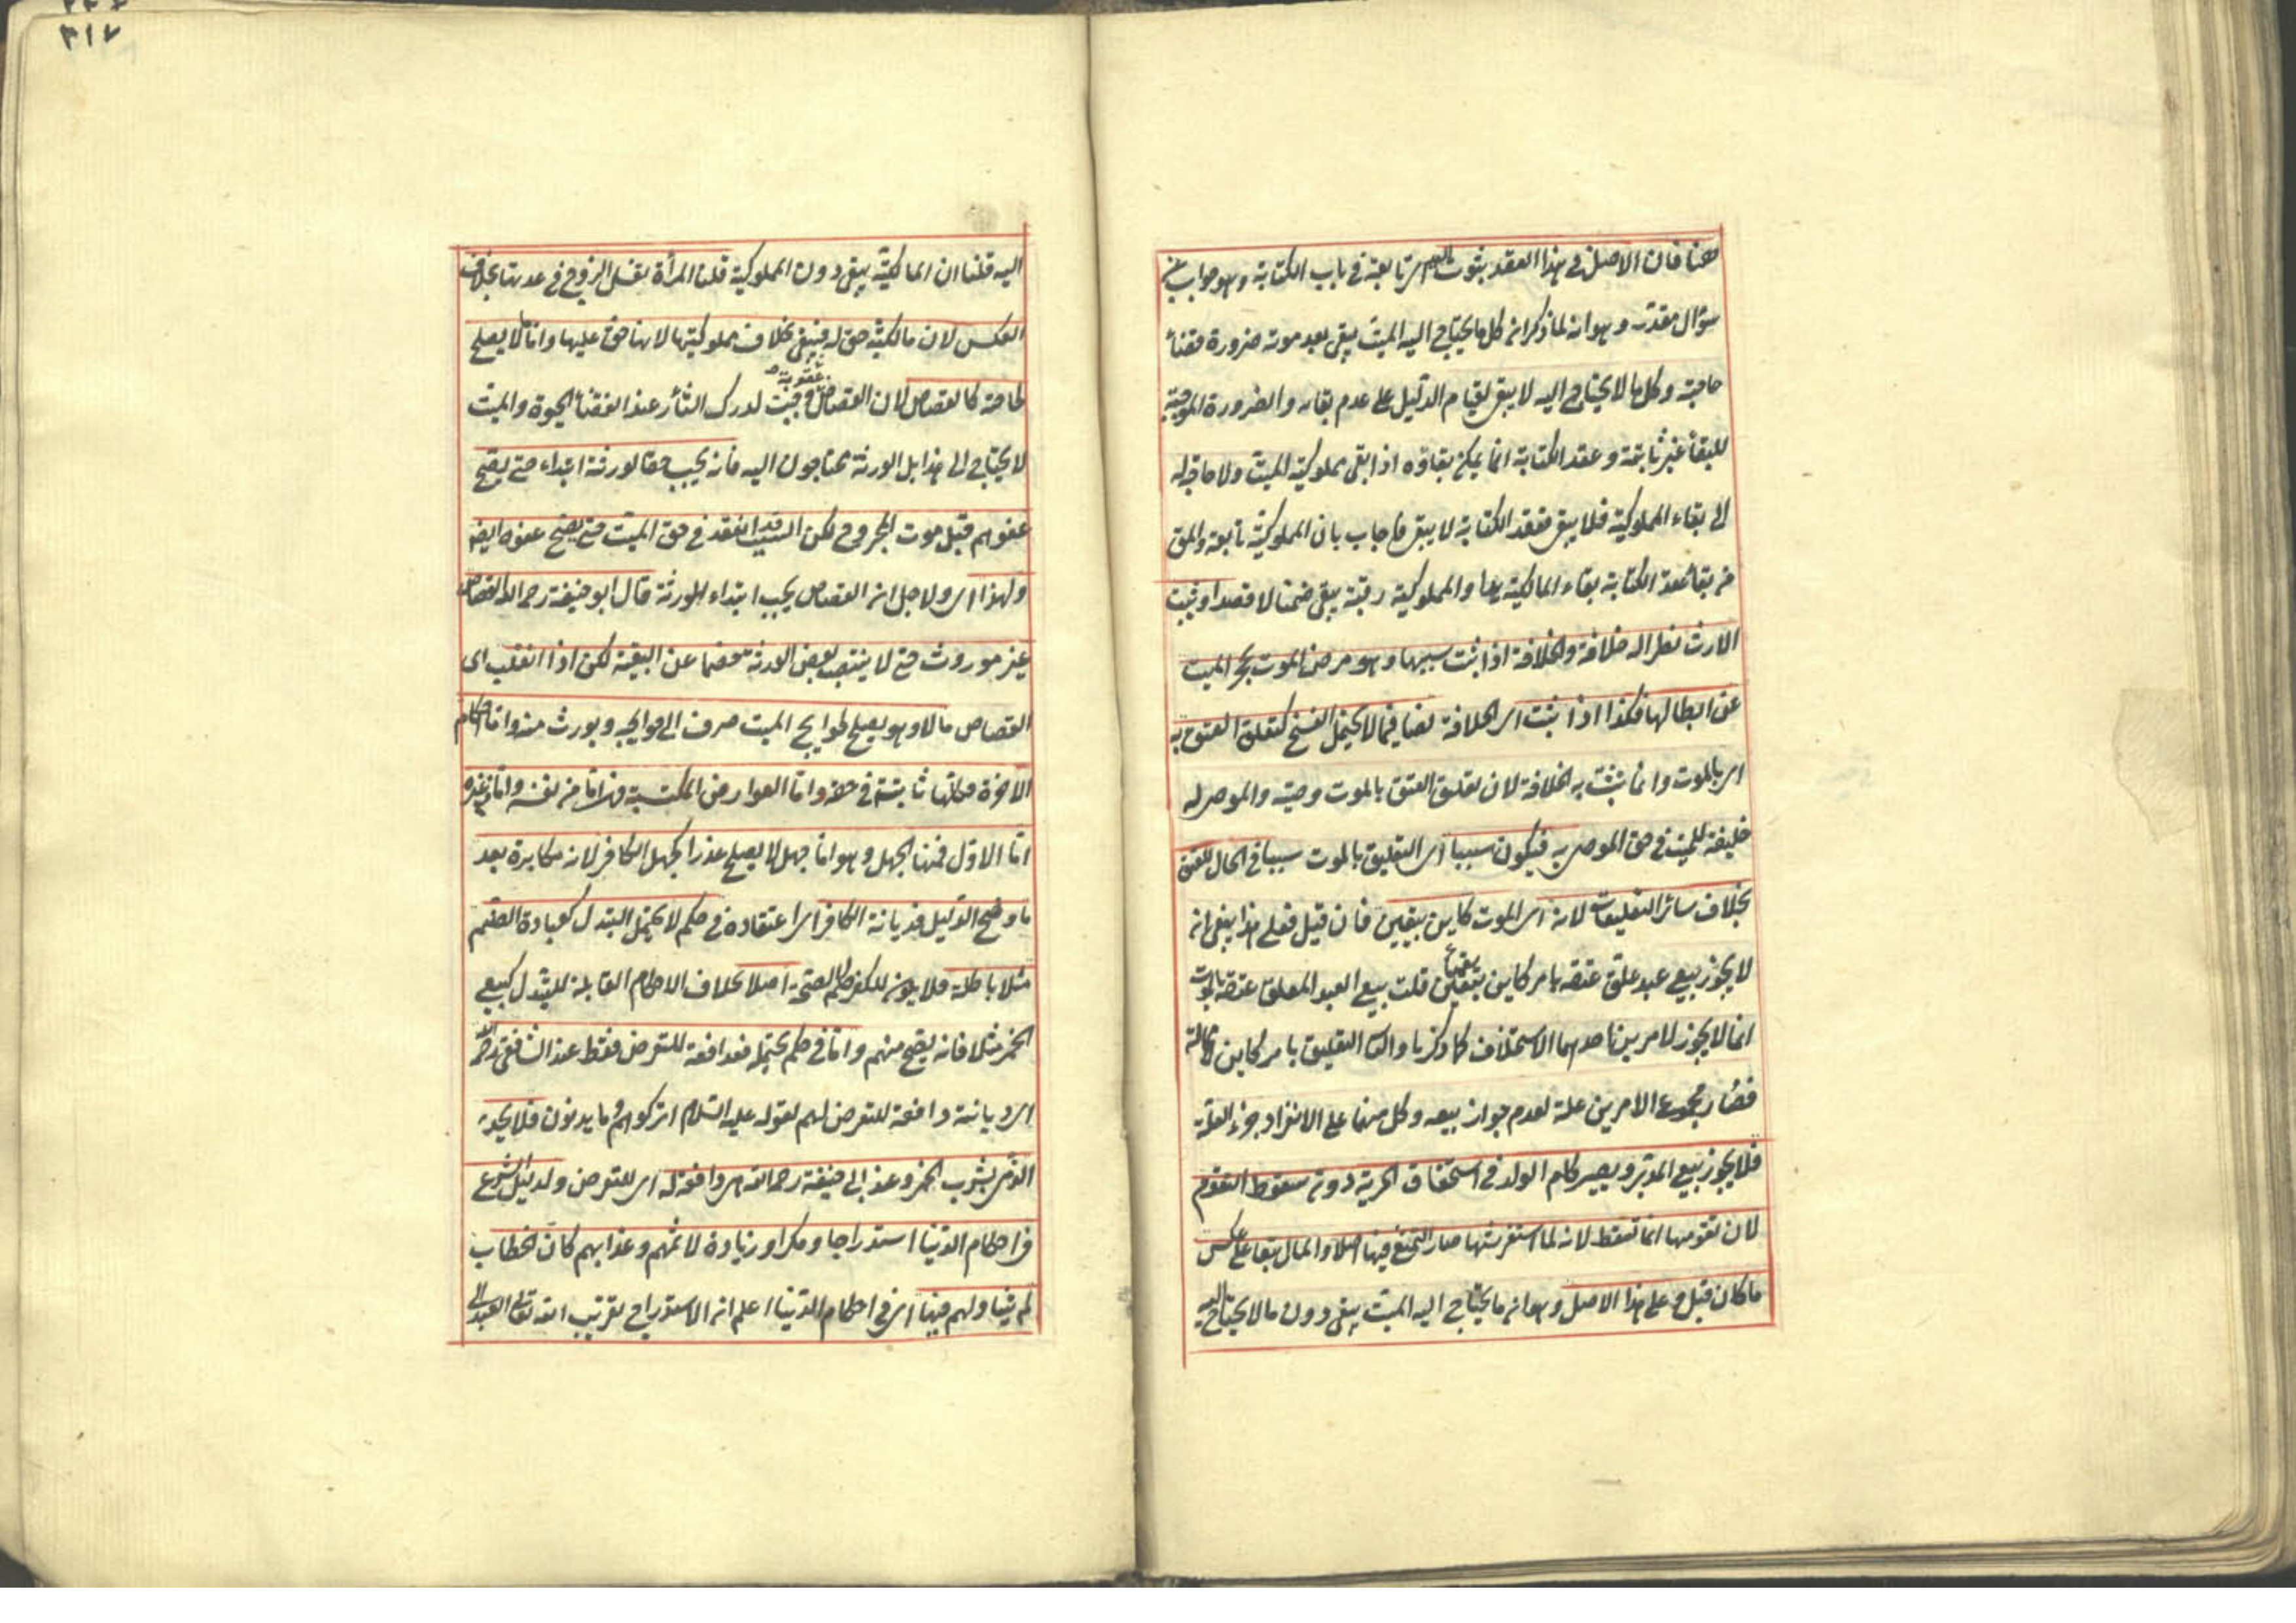 ضمنا فان الاصل في هذا العقد بثوت اليد اى تابعة في باب الكتابة وهو جواب عن
سؤال مقدر وهو انه لما ذكر انه كل ما يحتاج اليه الميت يبقى بعد موته ضرورة قضاء
حاجته وكل ما لا يحتاج اليه لا يبقى لقيام الدليل على عدم بقائه والضرورة الموجبة
للبقاء غير ثابتة وعقد الكتابة انما يمكن بقاؤه اذا بقى مملوكية الميت ولا حاجة له
الى بقاء المملوكية فلا يبقى فعقد الكتابة لا يبقى فاجاب بان المملوكية تابعة والمق
من بقاء عقد الكتابة بقاء المالكية يدا والمملوكية رقبة يبقى ضمنا لا قصدا ويثبت
الارث نظرا له خلافة والخلافة اذا ثبت سببها وهو مرض الموت يحجر الميت
عن ابطالها فكذا اذا ثبت اى الخلافة نصا فيما لا يحتمل الفسخ كتعلق العتق به
اى بالموت وانما يثبت به الخلافة لان تعليق العتق بالموت وصية والموصى له
خليفة للميت في حق الموصى به فيكون سببا اى التعليق بالموت سببا في الحال للعتق
بخلاف سائر التعليقات لانه اى الموت كاين بيقين فان قيل فعلى هذا ينبغى انه
لا يجوز بيع عبد علق عتقه بامر كاين بيقين قلت بيع العبد المعلق عتقه بالموت
انما لا يجوز لامرين احدهما الاستخلاف كما ذكرنا والثانى التعليق بامر كاين لا محالة
فصار مجموع الامرين علة لعدم جواز بيعه وكل منهما على الانفراد جزء العلة
فلا يجوز بيع المدبر ويصير كام الولد في استحقاق الحرية دون سقوط التقوم
لان تقومها انما تسقط لانه لما استفرشها صار التمتع فيها اصلا والمال تبعا على عكس
ما كان قبل وعلى هذا الاصل وهو انه ما يحتاج اليه الميت يبقى دون ما لا يحتاج اليه
٣١٧
اليه قلنا ان المالكية يبقى دون المملوكية قلنا المرأة تغسل الزوج في عدتها بخلاف
العكس لان مالكيته حق له فيبقى بخلاف مملوكيتها لانها حق عليها واما ما لا يصلح
لحاجته كالقصاص لان القصاص عقوبة وجبت لدرك الثأر عند انقضاء الحيوة والميت
لا يحتاج الى هذا بل الورثة محتاجون اليه فانه يجب حقا لورثة ابتداء حتى يصح
عفوهم قبل موت المجروح لكن السبب قد انعقد في حق الميت حتى يصح عفوه ايضا
ولهذا اى ولاجل انه القصاص يجب ابتداء للورثة قال ابو حنيفة رحمه الله القصاص
غير موروث حتى لا ينتصب بعض الورثة خصما عن البقية لكن اذا انقلب اى
القصاص مالا وهو يصلح لحوايج الميت صرف الى حوايجه ويورث منه واما احكام
الآخرة فكلها ثابتة في حقه واما العوارض المكتسبة فهى اما من نفسه واما من غيره
اما الاول فمنها الجهل وهو اما جهل لا يصلح عذرا كجهل الكافر لانه مكابرة بعد
ما وضح الدليل فديانة الكافر اى اعتقاده في حكم لا يحتمل التبدل كعبادة الصنم
مثلا باطلة فلا يكون للكفر حكم الصحة اصلا بخلاف الاحكام القابلة للتبدل كبيع
الخمر مثلا فانه يصح منهم واما في حكم يحتمله فدافعة للتعرض فقط عند الشافعى رحمه الله
اى ديانته دافعة للتعرض لهم لقوله عليه السلام اتركوهم وما يدينون فلا يحد
الذمى بشرب الخمر وعند ابى حنيفة رحمه الله دافعة له اى للتعرض ولدليل الشرع
في احكام الدنيا استدراجا ومكرا وزيادة لاثمهم وعذابهم كان الخطاب
لم يتناولهم فيها اى في احكام الدنيا اعلم انه الاستدراج تقريب الله تعالى العبد الى